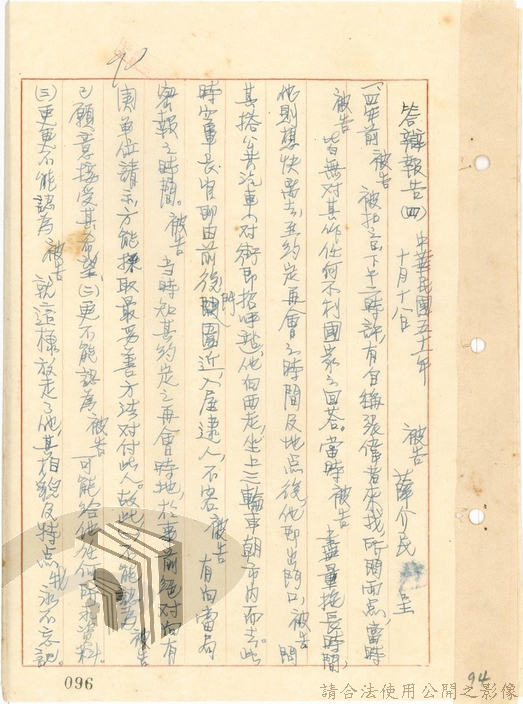 答辯報告(四) 中華民國五十一年
十月十八日 被告 薛介民 呈
被告 被扣之日下午二時許,有自稱張偉者來找所問兩点,當時
被告皆無對其作任何不利國家之回荅。當時被告盡量拖長時間,
他則想快離去,至約定再會之時間及地点後他即出門口,被告問
其搭公共汽車,對街即招呼 他向西走,坐上三輪車朝市內而去。此
時空軍長官即由前後門 近入屋逮人,不容被告有向當局
密報之時間。被告當時知其約定之再會時地,於事前絕對向有
責單位請示方能採取最妥善方法對付此人。故此(一)不能認為被告
已願意接受其希望,(二)更不能認為被告可能給他任何所求資料。
(三)更更不能認為被告就這樣放走了他,其相貌及特点我永不忘記。
096
94
請合法使用公開之影像